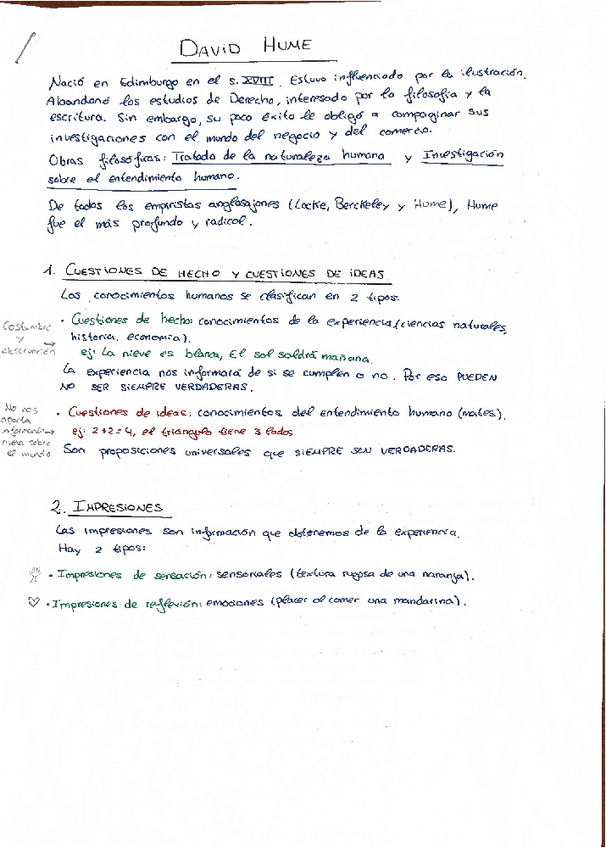 DAVID HUME
Nació en Edimburgo en el s. XVIII. Estuvo influenciado por la ilustración.
Abandonó los estudios de Derecho, interesado por la filosofía y la
escritura. Sin embargo, su poco éxito le obligó a compaginar sus
investigaciones con el mundo del negocio y del comercio.
Obras filosóficas: Tratado de la naturaleza humana y Investigación
sobre el entendimiento humano.
De todos los empiristas anglosajones (Locke, Berckeley y Hume), Hume
fue el más profundo y radical.
1. CUESTIONES DE HECHO Y CUESTIONES DE IDEAS
Los conocimientos humanos se clasifican en 2 tipos.
Costumbre
y
observación
· Cuestiones de hecho: conocimientos de la experiencia (ciencias naturales,
historia, economía).
ej: La nieve es blanca, El sol saldrá mañana.
La experiencia nos informará de si se cumplen o no. Por eso PUEDEN
NO SER SIEMPRE VERDADERAS.
No nos
aporta
información
nueva sobre
el mundo
· Cuestiones de ideas: conocimientos del entendimiento humano (mates).
ej: 2+2=4, el triángulo tiene 3 lados
Son proposiciones universales que SIEMPRE SON VERDADERAS.
2. IMPRESIONES
Las impresiones son información que obtenemos de la experiencia.
Hay 2 tipos:
· Impresiones de sensación: sensoriales (textura rugosa de una naranja).
· Impresiones de reflexión: emociones (placer al comer una mandarina).